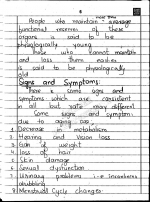 People who maintain average
functional reserve of these
organs is said to be
physiologically young
Those who cannot maintain
and loss them earlier
is said to be physiologically
old
Signs and Symptoms:
There is some signs and
symptoms which are consistent
in all but rate may different
Some signs and symptoms
due to aging are:
Decrease in metabolism
Hearing and vision loss
Loss of weight
loss of hair
Skin damage
Sexual dysfunction
Urinary problems i.e Incontinence
dribbling
Menstrual Cycle changes